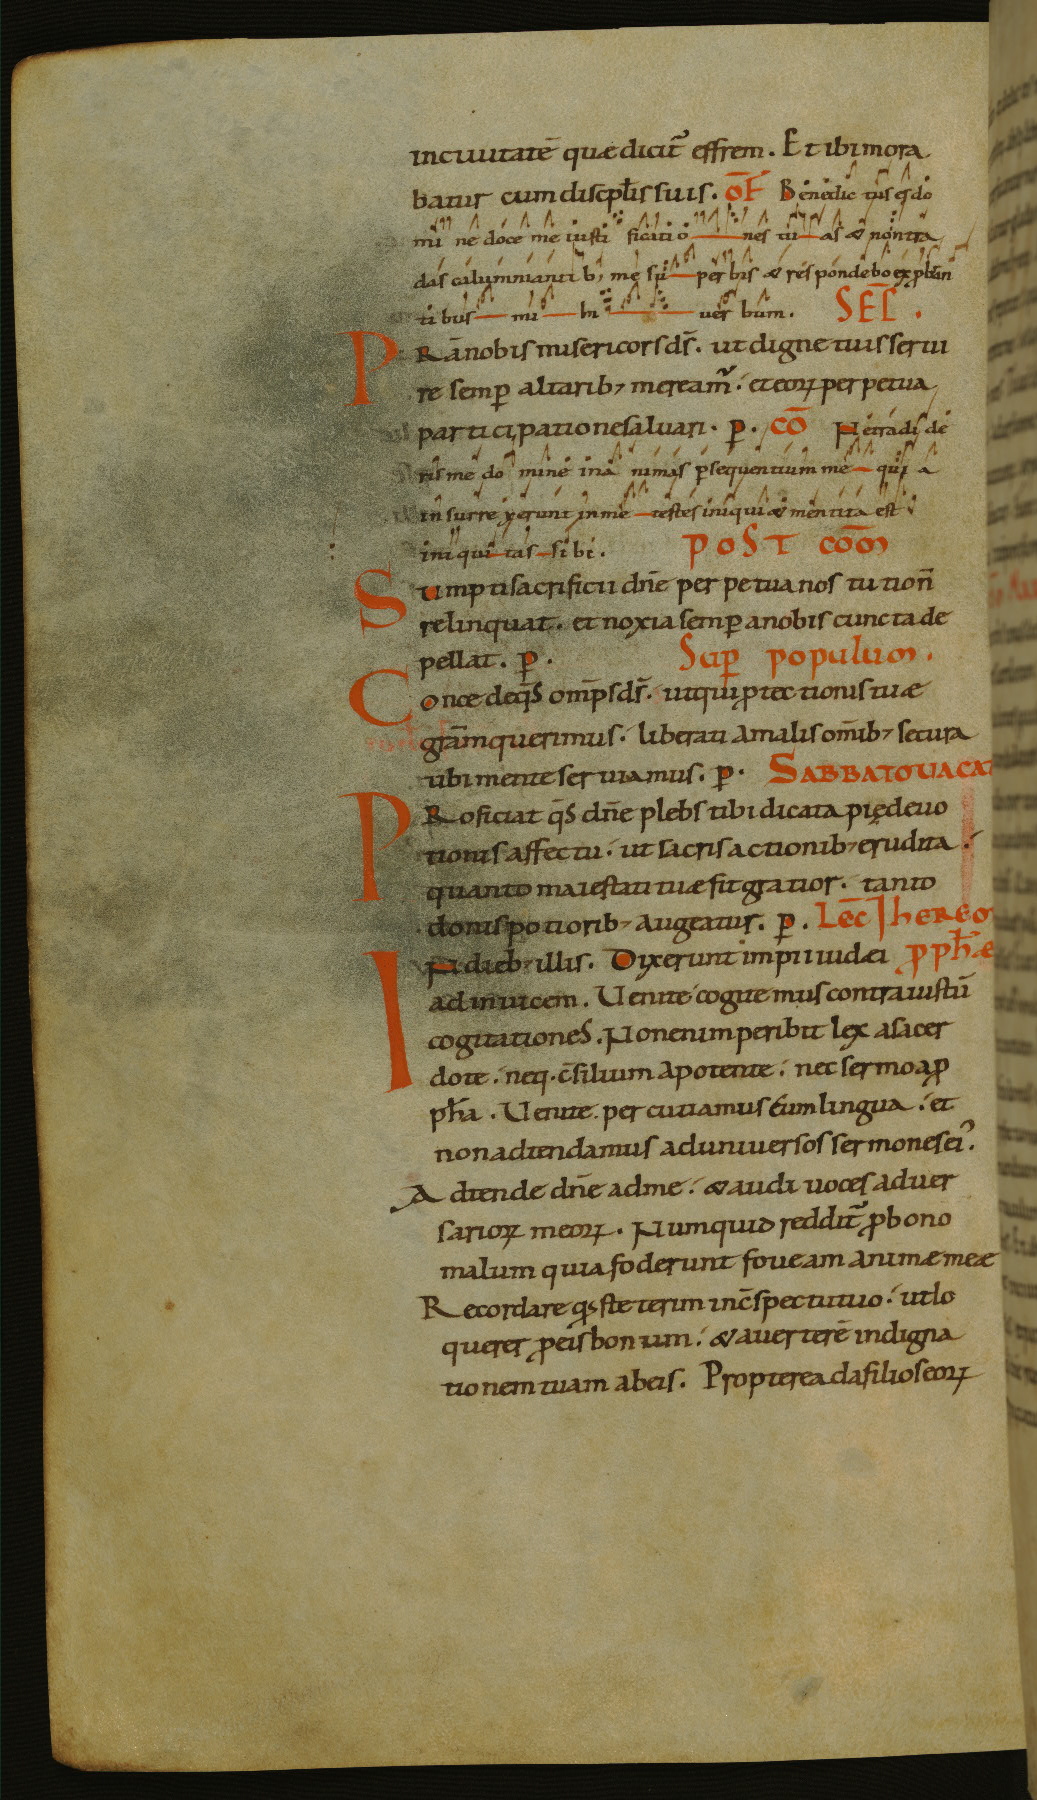 inciuitatē quae dicit̄ effrem. Et ibi mora
batur cum discipl̄is suis. OF̄ Benedictus es do
mine doce me iustificationes tuas & non tra
das calumniantib; me superbis & respondebo exprobran
tibus mihi uerbum. SEC̄.
PRā nobis misericors ds̄. ut digne tuis serui
re semp altarib; mereamr̄. et eorꝝ perpetua
participatione saluari. ꝑ. CŌ Ne tradide
ris me domine in animas ꝑsequentium me qui a
insurrexerunt in me testes iniqui & mentita est
iniquitas sibi. POST COM̄
Sumpti sacrificii dn̄e perpetua nos tuitio n̄
relinquat. et noxia semꝑ a nobis cuncta de
pellat. ꝑ. Suꝑ populum.
Concede qs̄ omp̄s ds̄. ut qui ꝓtectionis tuae
grām querimus. liberati a malis omīb; secura
tibi mente seruiamus. ꝑ. SABBATO UACAT
PRoficiat qs̄ dn̄e plebs tibi dicata pię deuo
tionis affectu. ut sacris actionib; erudita.
quanto maiestati tuae fit gratior. tanto
donis potiorib; augeatur. ꝑ. Lec̄ Iheremi
IN dieb; illis. Dixerunt impii iudaei ꝓph̄ae
ad inuicem. Uenite cogitemus contra iustū
cogitationes. Non enim peribit lex a sacer
dote. neq. c̄silium a potente. nec sermo a ꝓ
ph̄a. Uenite. percutiamus eum lingua. et
non adtendamus ad uniuersos sermones ei.
Adtende dn̄e ad me. & audi uoces aduer
sariorꝝ meorꝝ. Numquid reddit̄ ꝓ bono
malum quia foderunt foueam animae meae
Recordare q̄s steterim in c̄spectu tuo. ut lo
querer ꝓ eis bonum. & auerterē indigna
tionem tuam ab eis. Propterea da filios eorꝝ